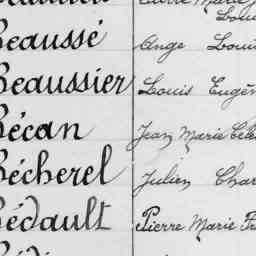 Beaussé Ange Loui
Beaussier Louis Eugèn
Bécan Jean Marie Céle
Bécherel Julien Char
Bédault Pierre Marie Fr